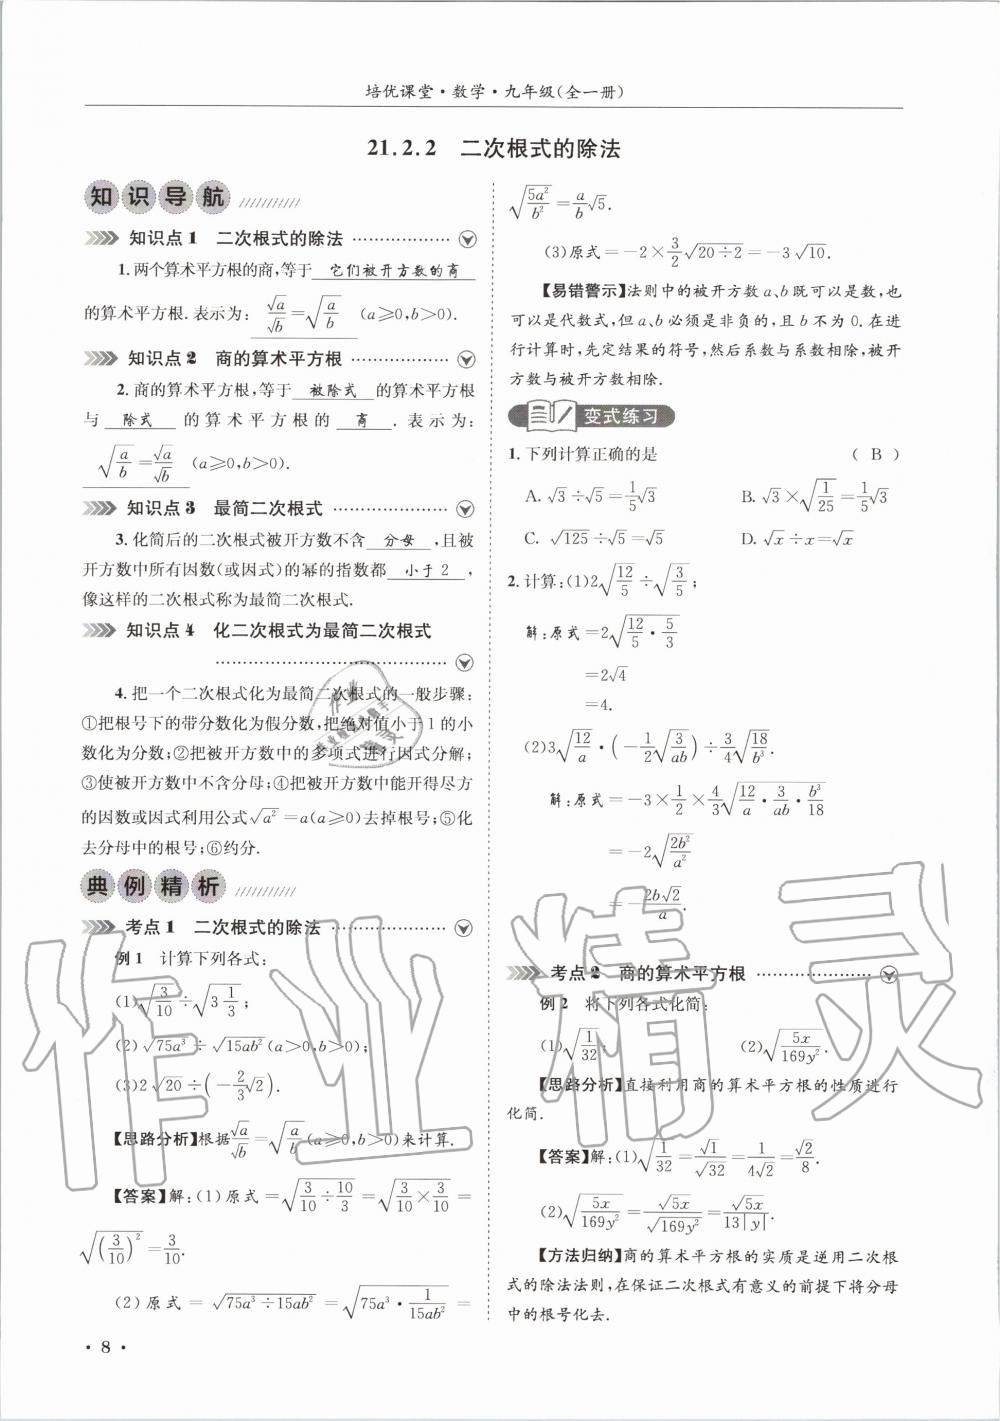 培优课堂·数学·九年级(全一册)
21.2.2 二次根式的除法
知识导航
知识点1 二次根式的除法
1.两个算术平方根的商,等于 它们被开方数的商
的算术平方根.表示为: √a/√b=√(a/b) (a≥0,b>0).
知识点2 商的算术平方根
2.商的算术平方根,等于 被除式 的算术平方根
与 除式 的算术平方根的 商 .表示为:
√(a/b)=√a/√b (a≥0,b>0).
知识点3 最简二次根式
3.化简后的二次根式被开方数不含 分母 ,且被
开方数中所有因数(或因式)的幂的指数都 小于2 ,
像这样的二次根式称为最简二次根式.
知识点4 化二次根式为最简二次根式
4.把一个二次根式化为最简二次根式的一般步骤:
①把根号下的带分数化为假分数,把绝对值小于1的小
数化为分数;②把被开方数中的多项式进行因式分解;
③使被开方数中不含分母;④把被开方数中能开得尽方
的因数或因式利用公式√a²=a(a≥0)去掉根号;⑤化
去分母中的根号;⑥约分.
典例精析
考点1 二次根式的除法
例1 计算下列各式:
(1)√(3/10)÷√(3 1/3);
(2)√75a³÷√15ab²(a>0,b>0);
(3)2√20÷(-2/3√2).
【思路分析】根据√a/√b=√(a/b)(a≥0,b>0)来计算.
【答案】解:(1)原式=√(3/10÷10/3)=√(3/10×3/10)=
√((3/10)²)=3/10.
(2)原式=√(75a³÷15ab²)=√(75a³·1/15ab²)=
√(5a²/b²)=a/b√5.
(3)原式=-2×3/2√(20÷2)=-3√10.
【易错警示】法则中的被开方数a、b既可以是数,也
可以是代数式,但a、b必须是非负的,且b不为0.在进
行计算时,先定结果的符号,然后系数与系数相除,被开
方数与被开方数相除.
变式练习
1.下列计算正确的是 ( B )
A.√3÷√5=1/5√3 B.√3×√(1/25)=1/5√3
C.√125÷√5=√5 D.√x÷x=√x
2.计算:(1)2√(12/5)÷√(3/5);
解:原式=2√(12/5·5/3)
=2√4
=4.
(2)3√(12/a)·(-1/2√(3/ab))÷3/4√(18/b³).
解:原式=-3×1/2×4/3√(12/a·3/ab·b³/18)
=-2√(2b²/a²)
=-2b√2/a.
考点2 商的算术平方根
例2 将下列各式化简:
(1)√(1/32); (2)√(5x/169y²).
【思路分析】直接利用商的算术平方根的性质进行
化简.
【答案】解:(1)√(1/32)=√1/√32=1/4√2=√2/8.
(2)√(5x/169y²)=√5x/√169y²=√5x/13|y|.
【方法归纳】商的算术平方根的实质是逆用二次根
式的除法法则,在保证二次根式有意义的前提下将分母
中的根号化去.
·8·
作业精灵